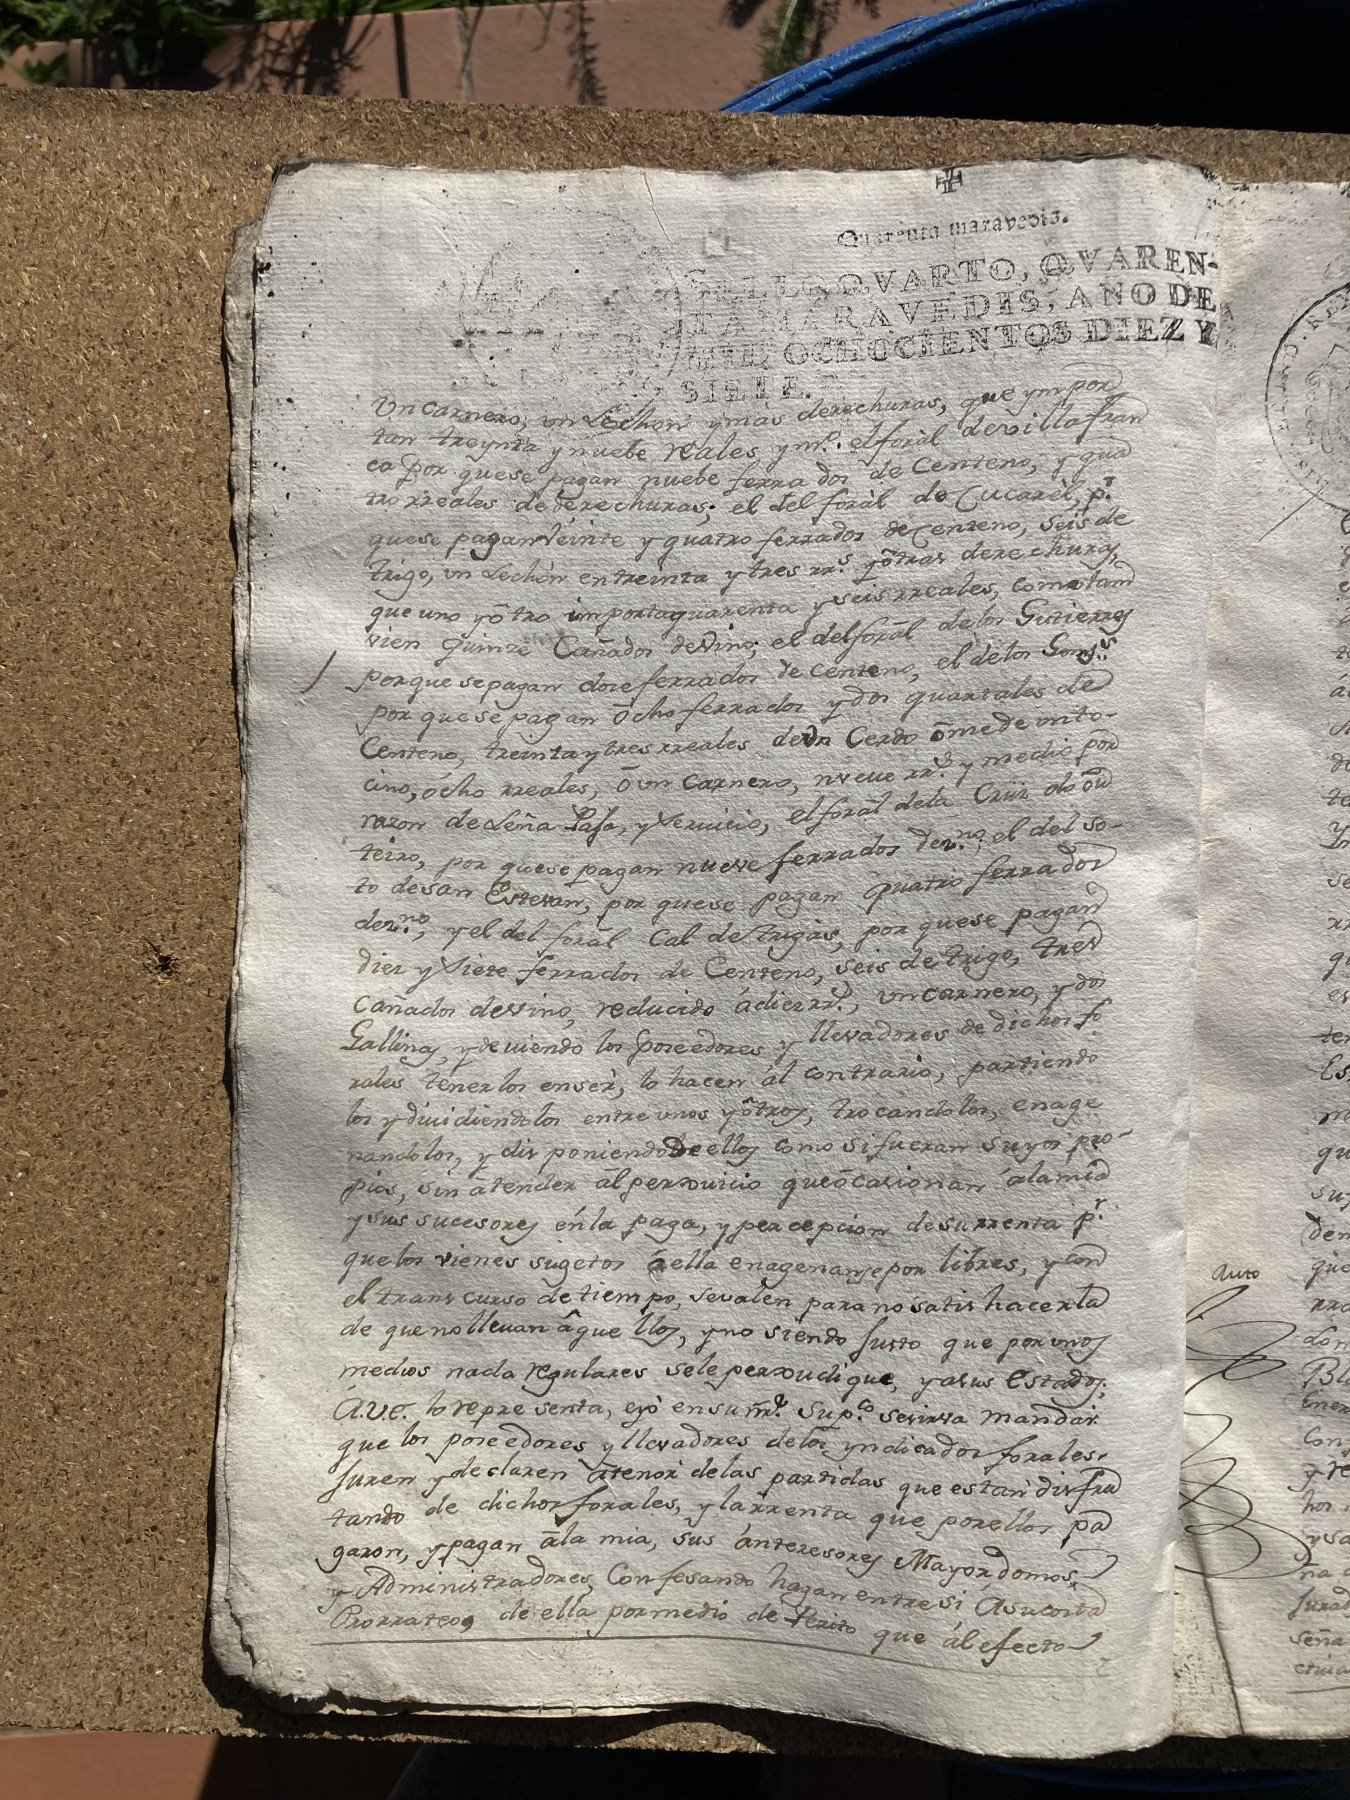 Quarenta maravedis.
SELLO QVARTO, QVAREN-
TA MARAVEDIS, AÑO DE
MIL OCHOCIENTOS DIEZ Y
SIETE.
Un Carnero, un Lechon y mas derechuras, que ympor
tan treynta y nuebe reales y mrs. el forál de villa fran
ca por que se pagan nuebe ferrados de Centeno, y qua
tro rreales de derechuras; el del forál de Cucarél, pr.
que se pagan veinte y quatro ferrados de Centeno, seis de
trigo, un Lechón en treinta y tres rrs. y ótras derechuras,
que uno y ótro importa quarenta y seis rreales, como tam
vien quinze Cañados de Vino; el del forál de los Gutierres
por que se pagan doze ferrados de Centeno, el de los Gomz.
por que se pagan ócho ferrados y dos quartales de
Centeno, treinta y tres rreales de un Cerdo ó me de unto-
cino, ócho rreales, ó un Carnero, nueve rrs. y medio por
razon de Leña Paja, y servicio, el forál de la Cruz do Ou
teiro, por que se pagan nueve ferrados de no.; el del So-
to de San Estevan, por que se pagan quatro ferrados
de no., y el del forál Cal de Trigás, por que se pagan
diez y siete ferrados de Centeno, seis de trigo, tres
Cañados de vino, reducido á diez rrs., un carnero, y dos
Gallinas, y deviendo los poseedores y llevadores de dichos fo
rales tenerlos en ser, lo hacen ál contrario, partiendo
los y dividiendolos entre unos y ótros, trocandolos, enage
nandolos, y disponiendo de ellos como si fueran suyos pro-
pios, sin átender ál perxuicio que ócasionan á la mia
y sus sucesores én la paga, y percepcion de su rrenta pr.
que los vienes sugetos á ella enagenanse por libres, y con
el transcurso de tiempo, se valen para nó satishacerla
de que no llevan áquellos, y no siendo justo que por unos
medios nada regulares se le perxudique, y a sus Estados;
Á. V.E. lo representa, en su Sup.co se sirva mandar
que los poseedores y llevadores de los yndicados forales,
juren y declaren átenor de las partidas que estan disfru
tando de dichos forales, y la rrenta que por ellos pa
garon, y pagan á la mia, sus ánteresores Mayordomos,
y Administradores, Confesando hagan entre si Á su costa
Prorrateos de ella por medio de Perito que ál efecto
Auto